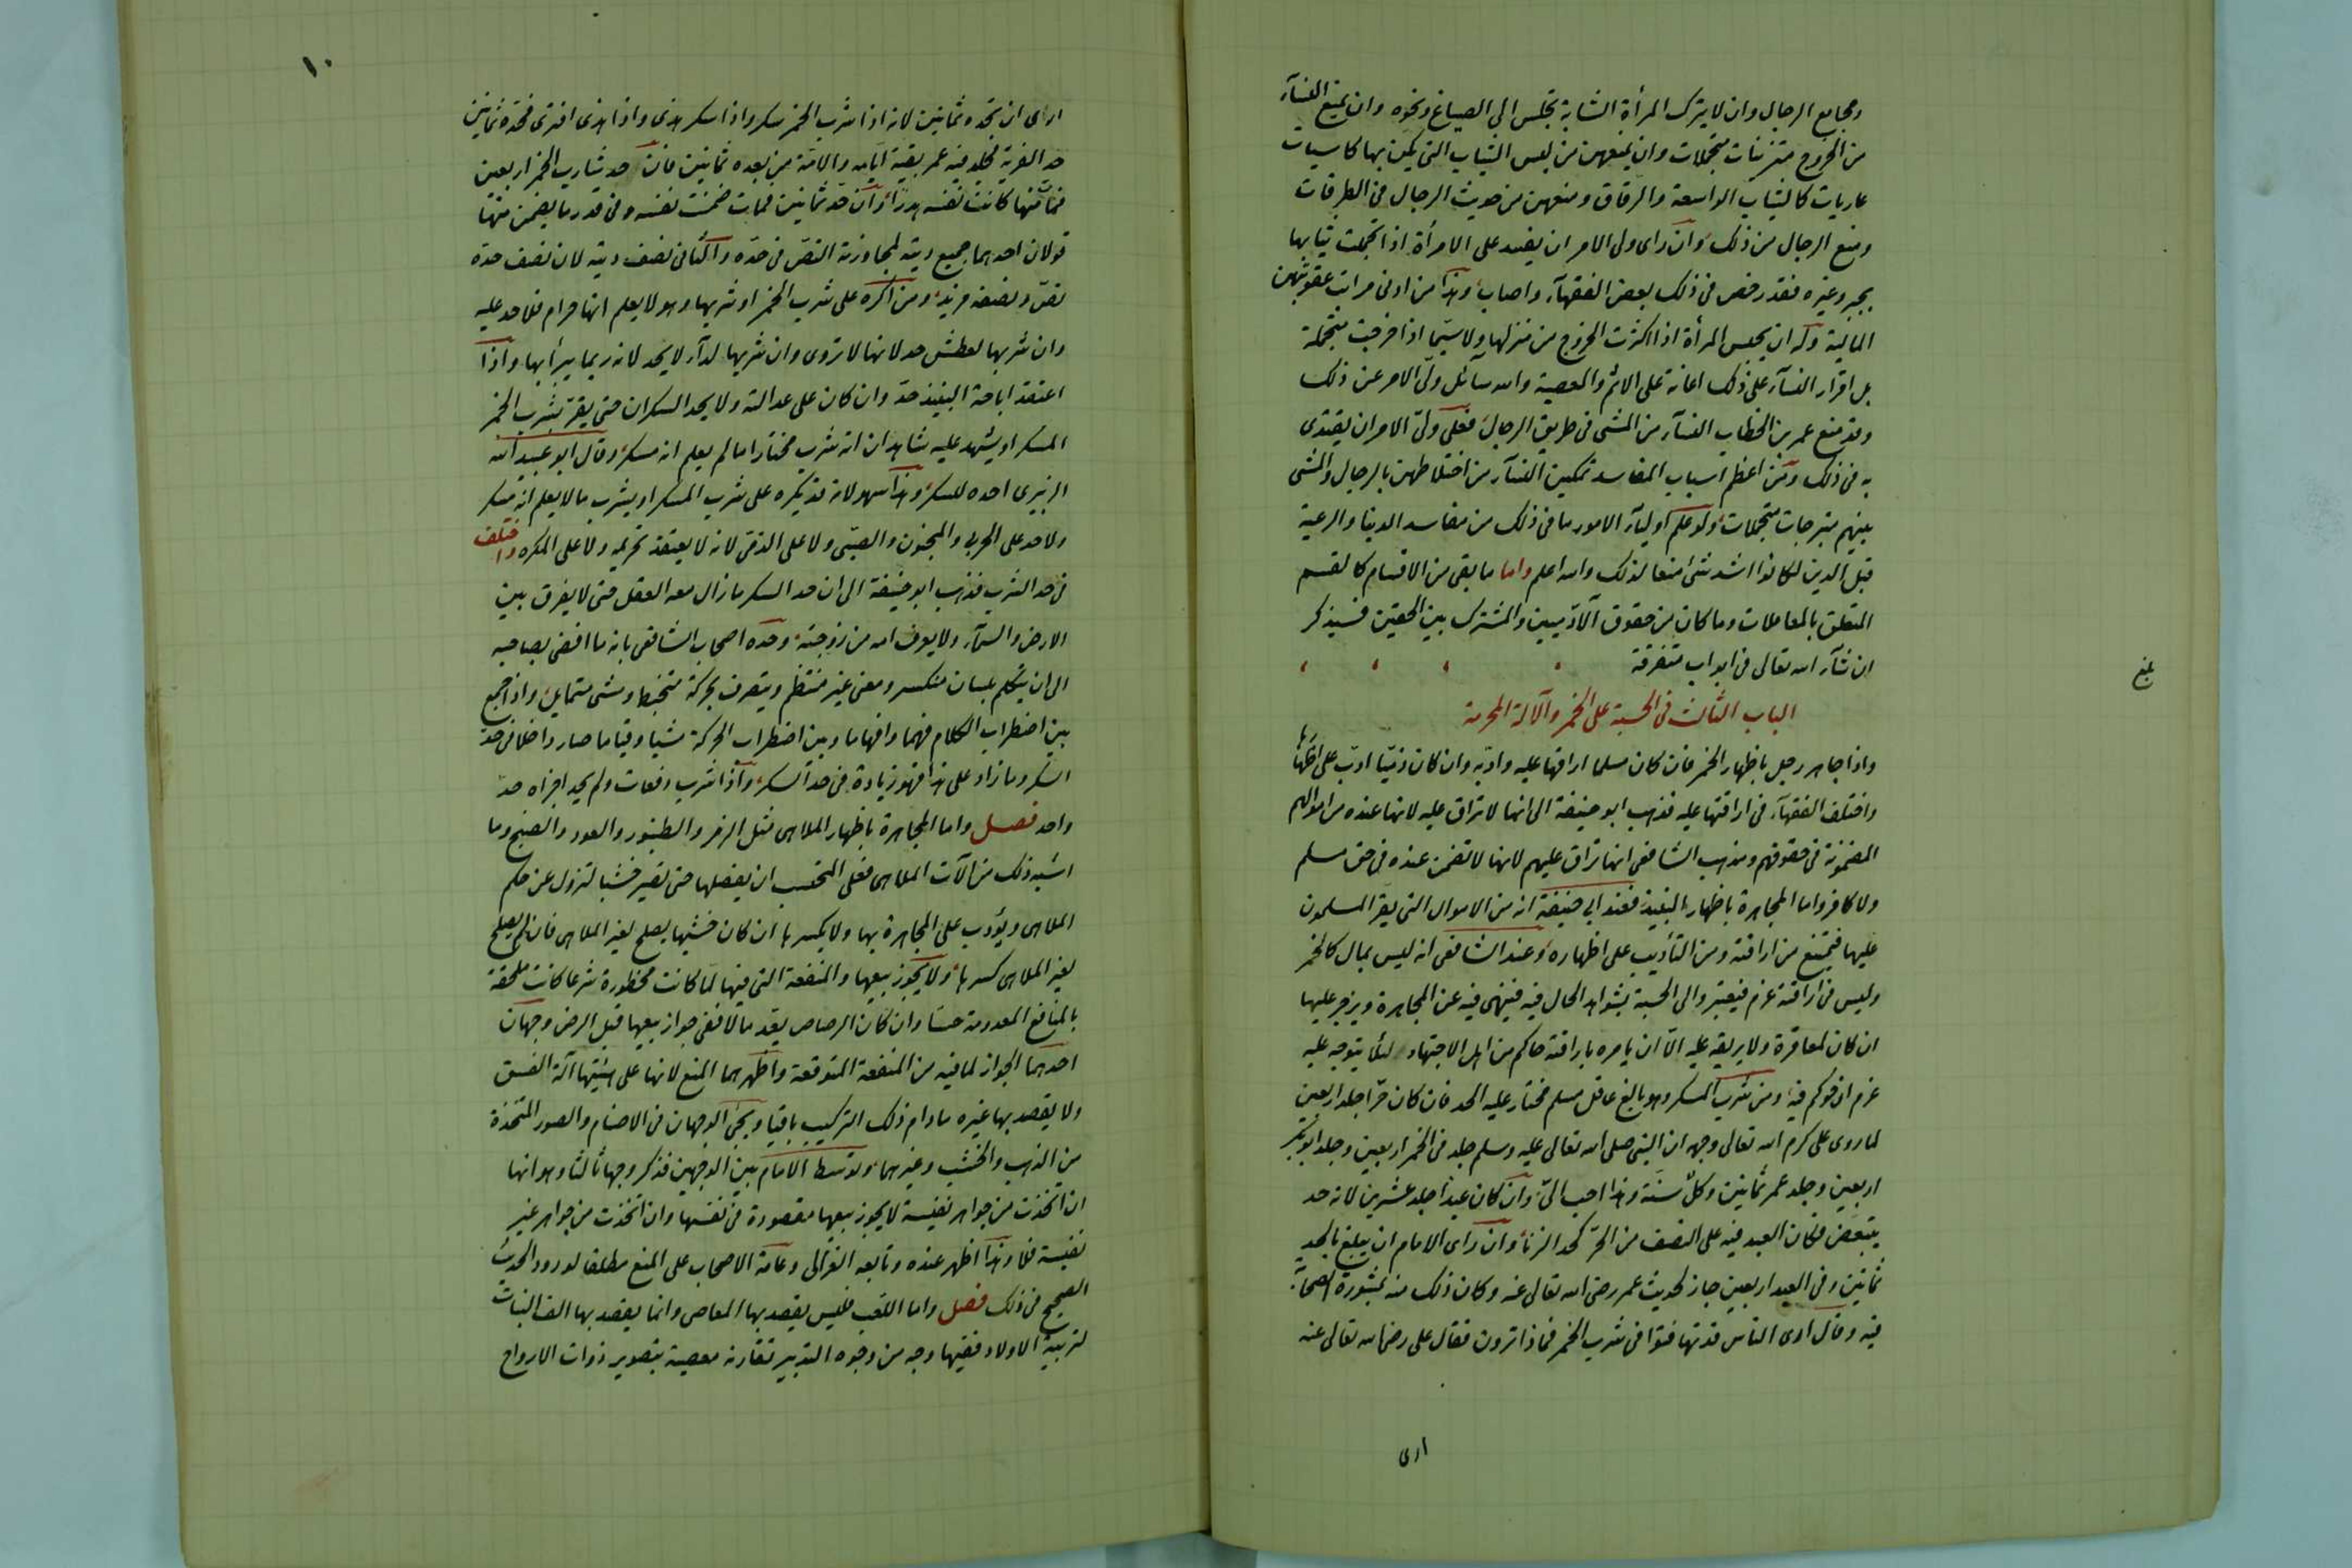 ومجامع الرجال وان لا يترك المرأة الشابة تجلس الى الصياغ ونحوه وان يمنع النسآء
من الخروج متزينات متجملات وان يمنعهن من لبس الثياب التى يكن بها كاسيات
عاريات كالثياب الواسعة والرقاق ومنعهن من حديث الرجال فى الطرقات
ومنع الرجال من ذلك وان راى ولى الامر ان يفسد على الامرأة اذا تجملت ثيابها
بحبر وغيره فقد رخص فى ذلك بعض الفقهآء واصاب وهذا من ادنى مراتب عقوبتهن
المالية وله ان يحبس المرأة اذا اكثرت الخروج من منزلها ولا سيما اذا خرجت متجملة
بل اقرار النسآء على ذلك اعانة على الاثم والمعصية والله سائل ولى الامر عن ذلك
وقد منع عمر بن الخطاب النسآء من المشى فى طريق الرجال فعلى ولى الامر ان يقتدى
به فى ذلك ومن اعظم اسباب المفاسد تمكين النسآء من اختلاطهن بالرجال والمشى
بينهم متبرجات متجملات ولو علم اوليآء الامور ما فى ذلك من مفاسد الدنيا والرعية
قبل الدين لكانوا اشد شئ منعا لذلك والله اعلم واما ما بقى من الاقسام كالقسم
المتعلق بالمعاملات وما كان من حقوق الآدميين والمشترك بين الحقين فسيذكر
ان شآء الله تعالى فى ابواب متفرقة
الباب الثالث فى الحسبة على الخمر والآلة المحرمة
واذا جاهر رجل باظهار الخمر فان كان مسلما اراقها عليه وادبه وان كان ذميا ادب على اظهارها
واختلف الفقهآء فى اراقتها عليه فذهب ابو حنيفة الى انها لا تراق عليه لانها عنده من اموالهم
المضمونة فى حقوقهم ومذهب الشافعى انها تراق عليهم لانها لا تضمن عنده فى حق مسلم
ولا كافر واما المجاهرة باظهار النبيذ فعند ابى حنيفة انه من الاموال التى يقر المسلمون
عليها فيمتنع من اراقته ومن التأديب على اظهاره وعند الشافعى انه ليس بمال كالخمر
وليس فى اراقته غرم فيعتبر والى الحسبة بشواهد الحال فيه فينهى فيه عن المجاهرة ويزجر عليها
ان كان لمعاقرة ولا يريقه عليه الا ان يامره باراقته حاكم من اهل الاجتهاد لئلا يتوجه عليه
غرم ان حوكم فيه ومن شرب المسكر وهو بالغ عاقل مسلم مختار عليه الحد فان كان حرا جلد اربعين
لما روى على كرم الله تعالى وجهه ان النبى صلى الله تعالى عليه وسلم جلد فى الخمر اربعين وجلد ابو بكر
اربعين وجلد عمر ثمانين وكل سنة وهذا احب الى وان كان عبدا جلد عشرين لانه حد
يتبعض فكان العبد فيه على النصف من الحر كحد الزنا وان راى الامام ان يبلغ بالحد
ثمانين وفى العبد اربعين جاز لحديث عمر رضى الله تعالى عنه وكان ذلك منه بمشورة الصحابة
فيه وقال ارى الناس قد تهافتوا فى شرب الخمر فماذا ترون فقال على رضى الله تعالى عنه
ارى
بلغ
١٠
ارى ان تحده ثمانين لانه اذا شرب الخمر سكر واذا سكر هذى واذا هذى افترى فحده ثمانين
حد الفرية فجلد فيه عمر بقية ايامه والائمة من بعده ثمانين فان حد شارب الخمر اربعين
فمات منها كانت نفسه هدرا وان حد ثمانين فمات ضمنت نفسه وفى قدر ما يضمن منها
قولان احدهما جميع ديته لمجاوزته النص فى حده والثانى نصف ديته لان نصف حده
نص ونصفه مزيد ومن اكره على شرب الخمر او شربها وهو لا يعلم انها حرام فلا حد عليه
وان شربها لعطش حد لانها لا تروى وان شربها لدآء لا يحد لانه ربما يبرأ بها واذا
اعتقد اباحة النبيذ حد وان كان على عدالته ولا يحد السكران حتى يقر بشرب الخمر
المسكر او يشهد عليه شاهدان انه شرب مختارا ما لم يعلم انه مسكر وقال ابو عبيد الله
الزبيرى احده للسكر وهذا سهو لانه قد يكره على شرب المسكر او يشرب ما لا يعلم انه مسكر
ولا حد على الحربى والمجنون والصبى ولا على الذمى لانه لا يعتقد تحريمه ولا على المكره واختلف
فى حد الشرب فذهب ابو حنيفة الى ان حد السكر ما زال معه العقل حتى لا يفرق بين
الارض والسمآء ولا يعرف امه من زوجته وحده اصحاب الشافعى بانه ما افضى بصاحبه
الى ان يتكلم بلسان منكسر ومعنى غير منتظم ويتصرف بحركة متخبط ومشى متمايل واذا جمع
بين اضطراب الكلام فهما وافهاما وبين اضطراب الحركة مشيا وقياما صار داخلا فى حد
السكر وما زاد على هذا فهو زيادة فى حد السكر واذا شرب دفعات ولم يحد اجزاه حد
واحد فصل واما المجاهرة باظهار الملاهى مثل الزمر والطنبور والعود والصنج وما
اشبه ذلك من آلات الملاهى فعلى المحتسب ان يفصلها حتى تصير خشبا لتزول عن حكم
الملاهى ويؤدب على المجاهرة بها ولا يكسرها ان كان خشبها يصلح لغير الملاهى فان لم يصلح
لغير الملاهى كسرها ولا يجوز بيعها والمنفعة التى فيها لما كانت محظورة شرعا كانت ملحقة
بالمنافع المعدومة حسا وان كان الرصاص يعد مالا ففى جواز بيعها قبل الرض وجهان
احدهما الجواز لما فيه من المنفعة المتوقعة واظهرهما المنع لانها على هيئتها آلة الفسق
ولا يقصد بها غيره ما دام ذلك التركيب باقيا ويجئ الوجهان فى الاصنام والصور المتخذة
من الذهب والخشب وغيرهما وتوسط الامام بين الوجهين فذكر وجها ثالثا وهو انها
ان اتخذت من جواهر نفيسة لا يجوز بيعها مقصودة فى نفسها وان اتخذت من جواهر غير
نفيسة فلا وهذا اظهر عنده وتابعه الغزالى وعامة الاصحاب على المنع مطلقا لورود الحديث
الصحيح فى ذلك فصل واما اللعب فليس يقصد بها المعاصى وانما يقصد بها الف البنات
لتربية الاولاد ففيها وجه من وجوه التدبير تقارنه معصية بتصوير ذوات الارواح